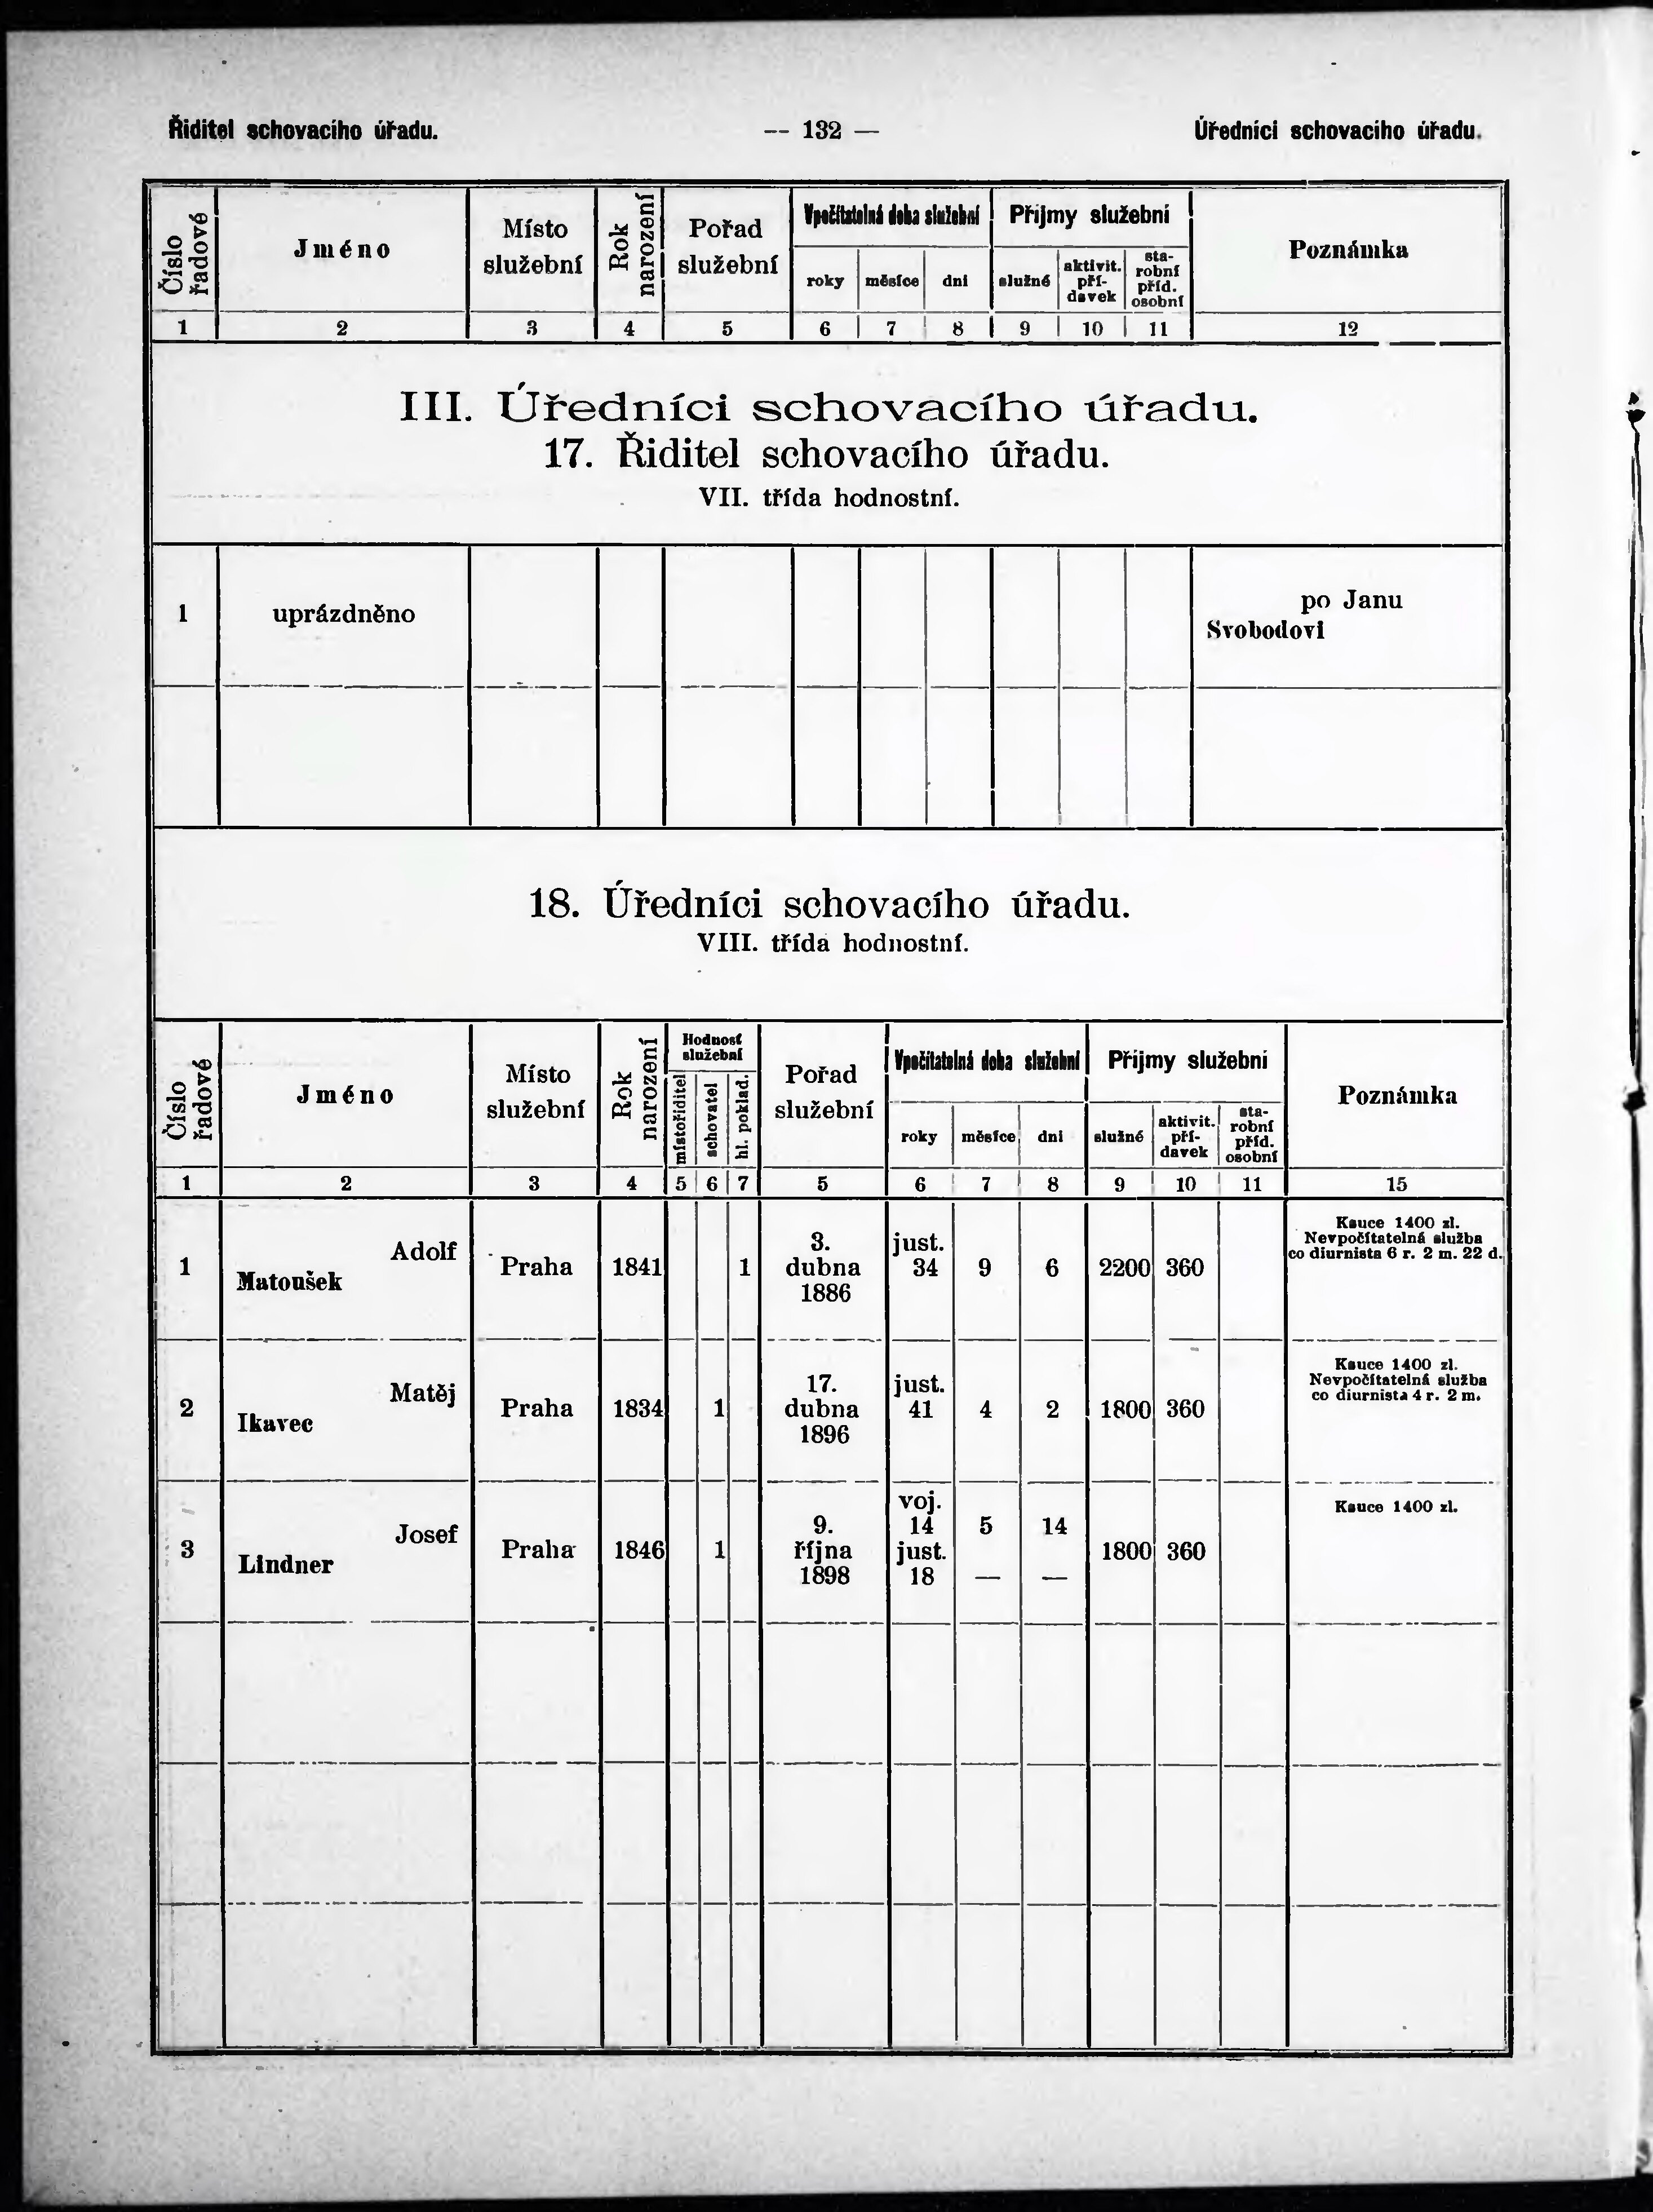 Řiditel schovacího úřadu. — 132 — Úředníci schovacího úřadu.
Číslo řadové
Jméno
Místo služební
Rok narození
Pořad služební
Vpočítatelná doba služební
Příjmy služební
Poznámka
roky měsíce dni služné aktivit. pří- davek sta- robní příd. osobní
1 2 3 4 5 6 7 8 9 10 11 12
III. Úředníci schovacího úřadu.
17. Řiditel schovacího úřadu.
VII. třída hodnostní.
po Janu
1 uprázdněno
Svobodovi
18. Úředníci schovacího úřadu.
VIII. třída hodnostní.
Číslo řadové
Jméno
Místo služební
Rok narození
Hodnost služební
místořiditel schovatel hl. poklad.
Pořad služební
Vpočítatelná doba služební
Příjmy služební
Poznámka
roky měsíce dni služné aktivit. pří- davek sta- robní příd. osobní
1 2 3 4 5 6 7 5 6 7 8 9 10 11 15
Kauce 1400 zl.
Nevpočítatelná služba
co diurnista 6 r. 2 m. 22 d.
Adolf 3. just.
1 Praha 1841 1 dubna 34 9 6 2200 360
Matoušek 1886
Kauce 1400 zl.
Nevpočítatelná služba
co diurnista 4 r. 2 m.
Matěj 17. just.
2 Praha 1834 1 dubna 41 4 2 1800 360
Ikavec 1896
voj. Kauce 1400 zl.
Josef 9. 14 5 14
3 Praha 1846 1 října just. 1800 360
Lindner 1898 18 — —